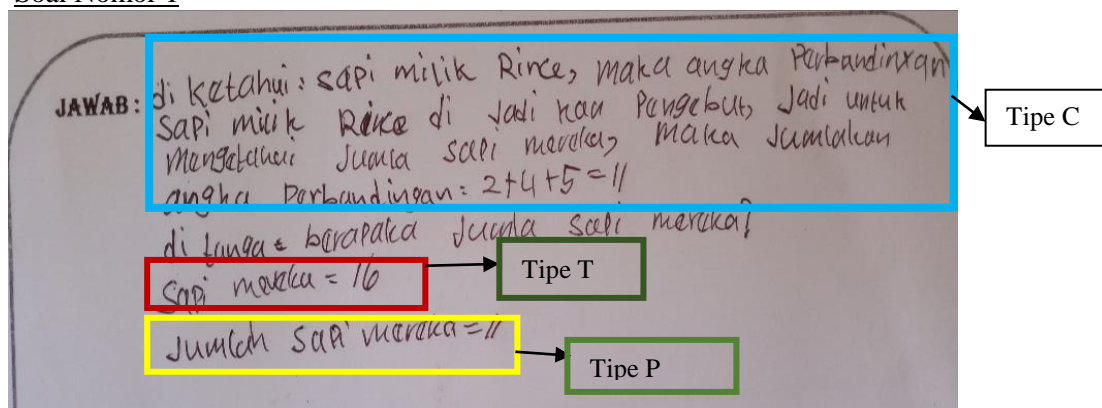 Soal Nomor 1
JAWAB: di ketahui: sapi milik Rince, maka angka Perbandingan
sapi milik Rince di jadi kan Pengebut, Jadi untuk
mengetahui Jumla sapi mereka, maka Jumlakan
angka Perbandingan: 2+4+5=11
di tanya: berapaka Jumla sapi mereka?
sapi mereka = 16
Jumlah sapi mereka = 11
Tipe C
Tipe T
Tipe P